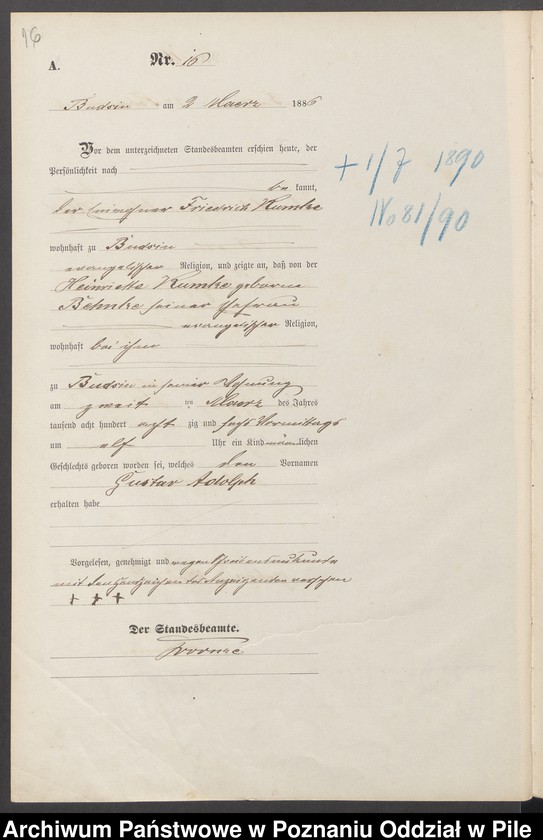 16
A.
Nr. 16
Budsin am 2 Maerz 1886
Vor dem unterzeichneten Standesbeamten erschien heute, der
Persönlichkeit nach
be kannt,
der Einwohner Friedrich Kumke
wohnhaft zu Budsin
evangelischer Religion, und zeigte an, daß von der
Heinriette Kumke geborne
Behnke seiner Ehefrau
evangelischer Religion,
wohnhaft bei ihm
zu Budsin in seiner Wohnung
am zweit ten Maerz des Jahres
tausend acht hundert acht zig und sechs Vormittags
um elf Uhr ein Kind männlichen
Geschlechts geboren worden sei, welches den Vornamen
Gustav Adolph
erhalten habe
Vorgelesen, genehmigt und wegen Schreibensunkunde
mit den Handzeichen des Anzeigenden versehen
+ + +
Der Standesbeamte.
+ 1/7 1890
No 81/90
Archiwum Państwowe w Poznaniu Oddział w Pile